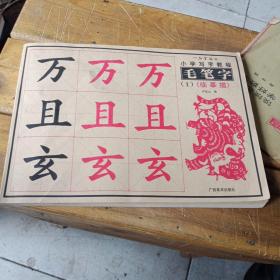 小学写字教程
毛笔字
(1)(临摹描)
万万万
且且且
玄玄玄
广西美术出版社